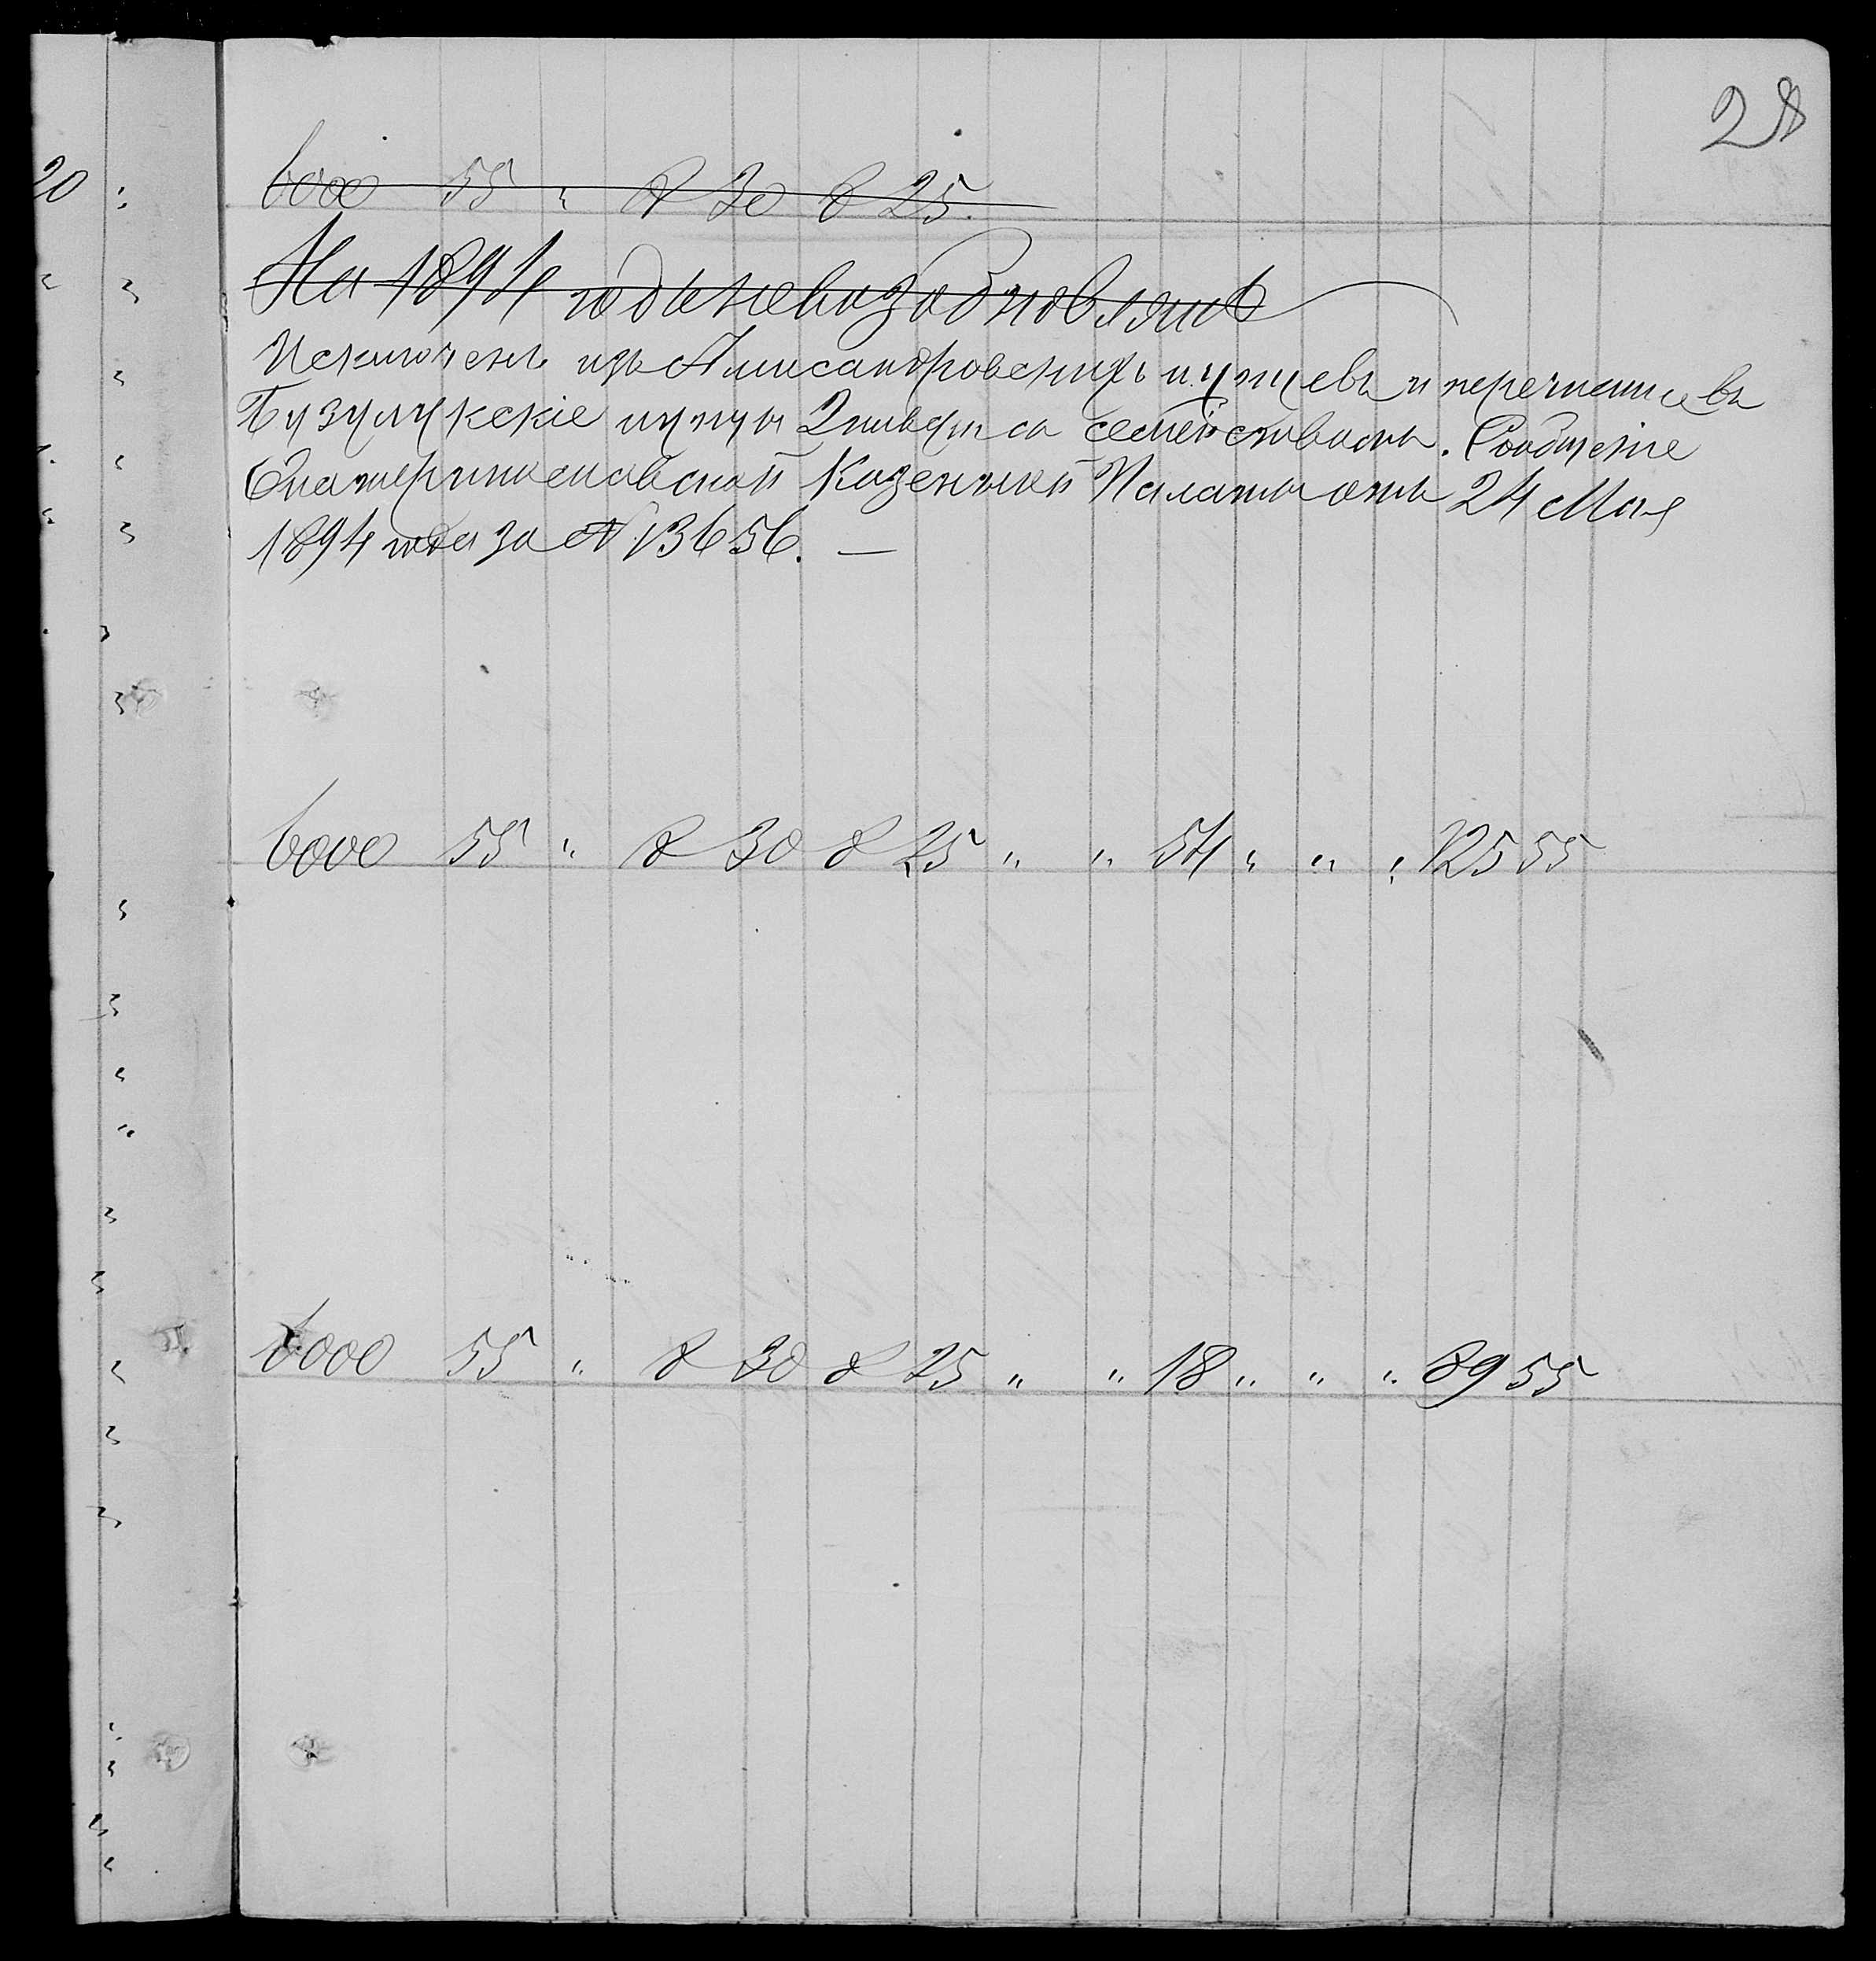 28
20
6000 55 " 8 30 8 25.
На 1894 годъ не возобновлялъ
Исключенъ изъ Александровскихъ купцевъ и перечисленъ въ
Бузулукскіе купцы 2 гильдіи съ семействомъ. Сообщеніе
Екатеринославской Казенной Палаты отъ 24 Мая
1894 года за № 13656. —
6000 55 " 8 30 8 25 " " 54 " " " 125 55
6000 55 " 8 30 8 25 " " 18 " " " 89 55